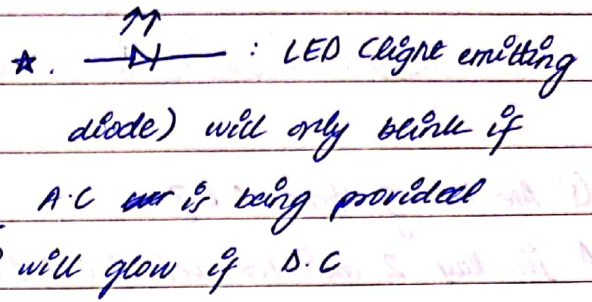 ★. : LED (light emitting
diode) will only blink if
A.C is being provided
will glow if D.C